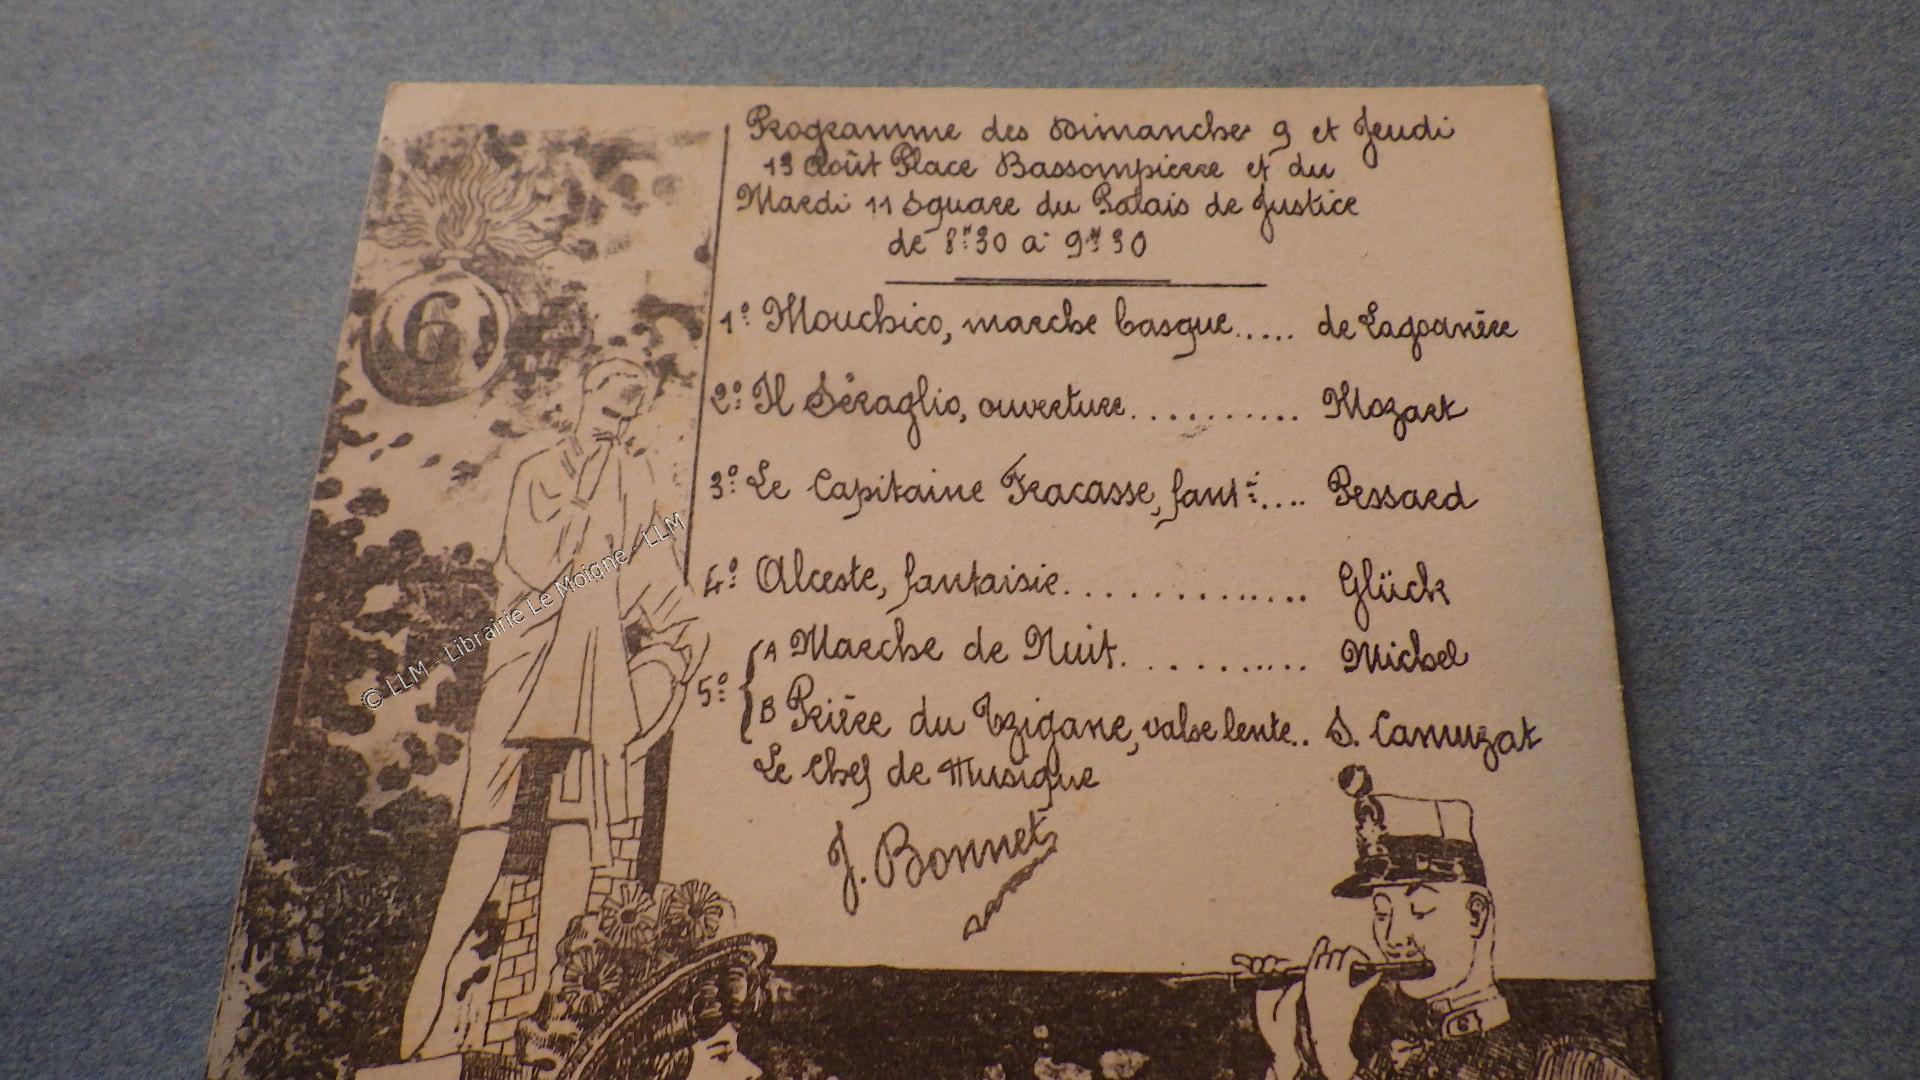 Programme des Dimanche 9 et Jeudi
13 Août Place Bassompierre et du
Mardi 11 Square du Palais de Justice
de 8h30 a 9h30
1º Mouchico, marche basque..... de Lagoanère
2º Il Séraglio, ouverture.......... Mozart
3º Le Capitaine Fracasse, fantie.... Pessard
4º Alceste, fantaisie.............. Glück
5º { A Marche de Nuit........... Michel
B Prière du Tzigane, valse lente.. S. Camuzat
Le Chef de Musique
J. Bonnet
6
© LLM - Librairie Le Moigne - LLM